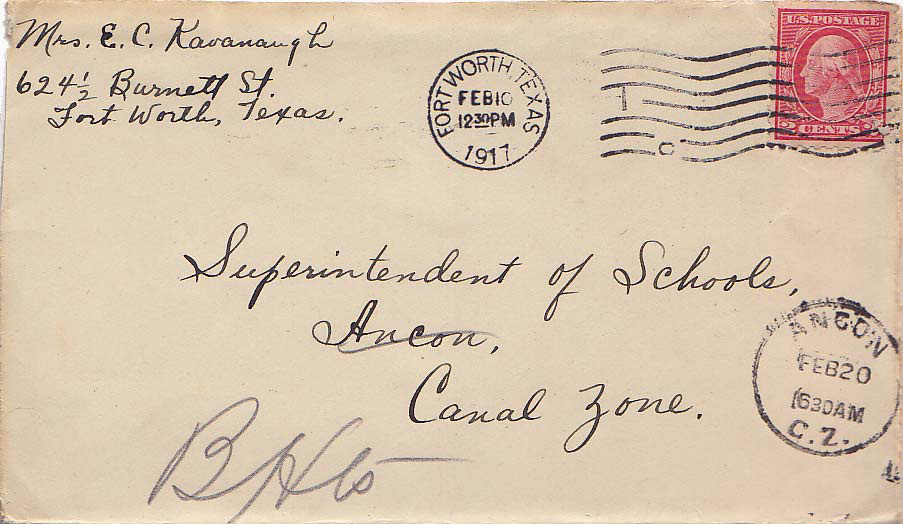 Mrs. E. C. Kavanaugh
624½ Burnett St.
Fort Worth, Texas.
FORT WORTH, TEXAS
FEB 10
12 30 PM
1917
U.S. POSTAGE
2 CENTS 2
Superintendent of Schools,
Ancon,
Canal Zone.
ANCON
FEB 20
630 AM
C. Z.
B Hts